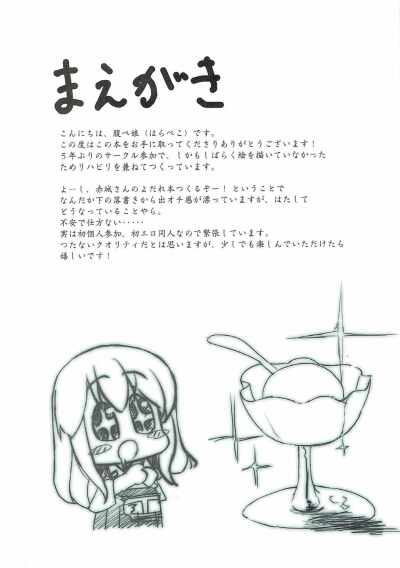 まえがき
こんにちは、腹ペ娘（はらぺこ）です。
この度はこの本をお手に取ってくださりありがとうございます！
５年ぶりのサークル参加で、しかもしばらく絵を描いていなかった
ためリハビリを兼ねてつくっています。
よーし、赤城さんのよだれ本つくるぞー！ということで
なんだか下の落書きから出オチ感が漂っていますが、はたして
どうなっていることやら。
不安で仕方ない・・・・・
実は初個人参加、初エロ同人なので緊張しています。
つたないクオリティだとは思いますが、少しでも楽しんでいただけたら
嬉しいです！